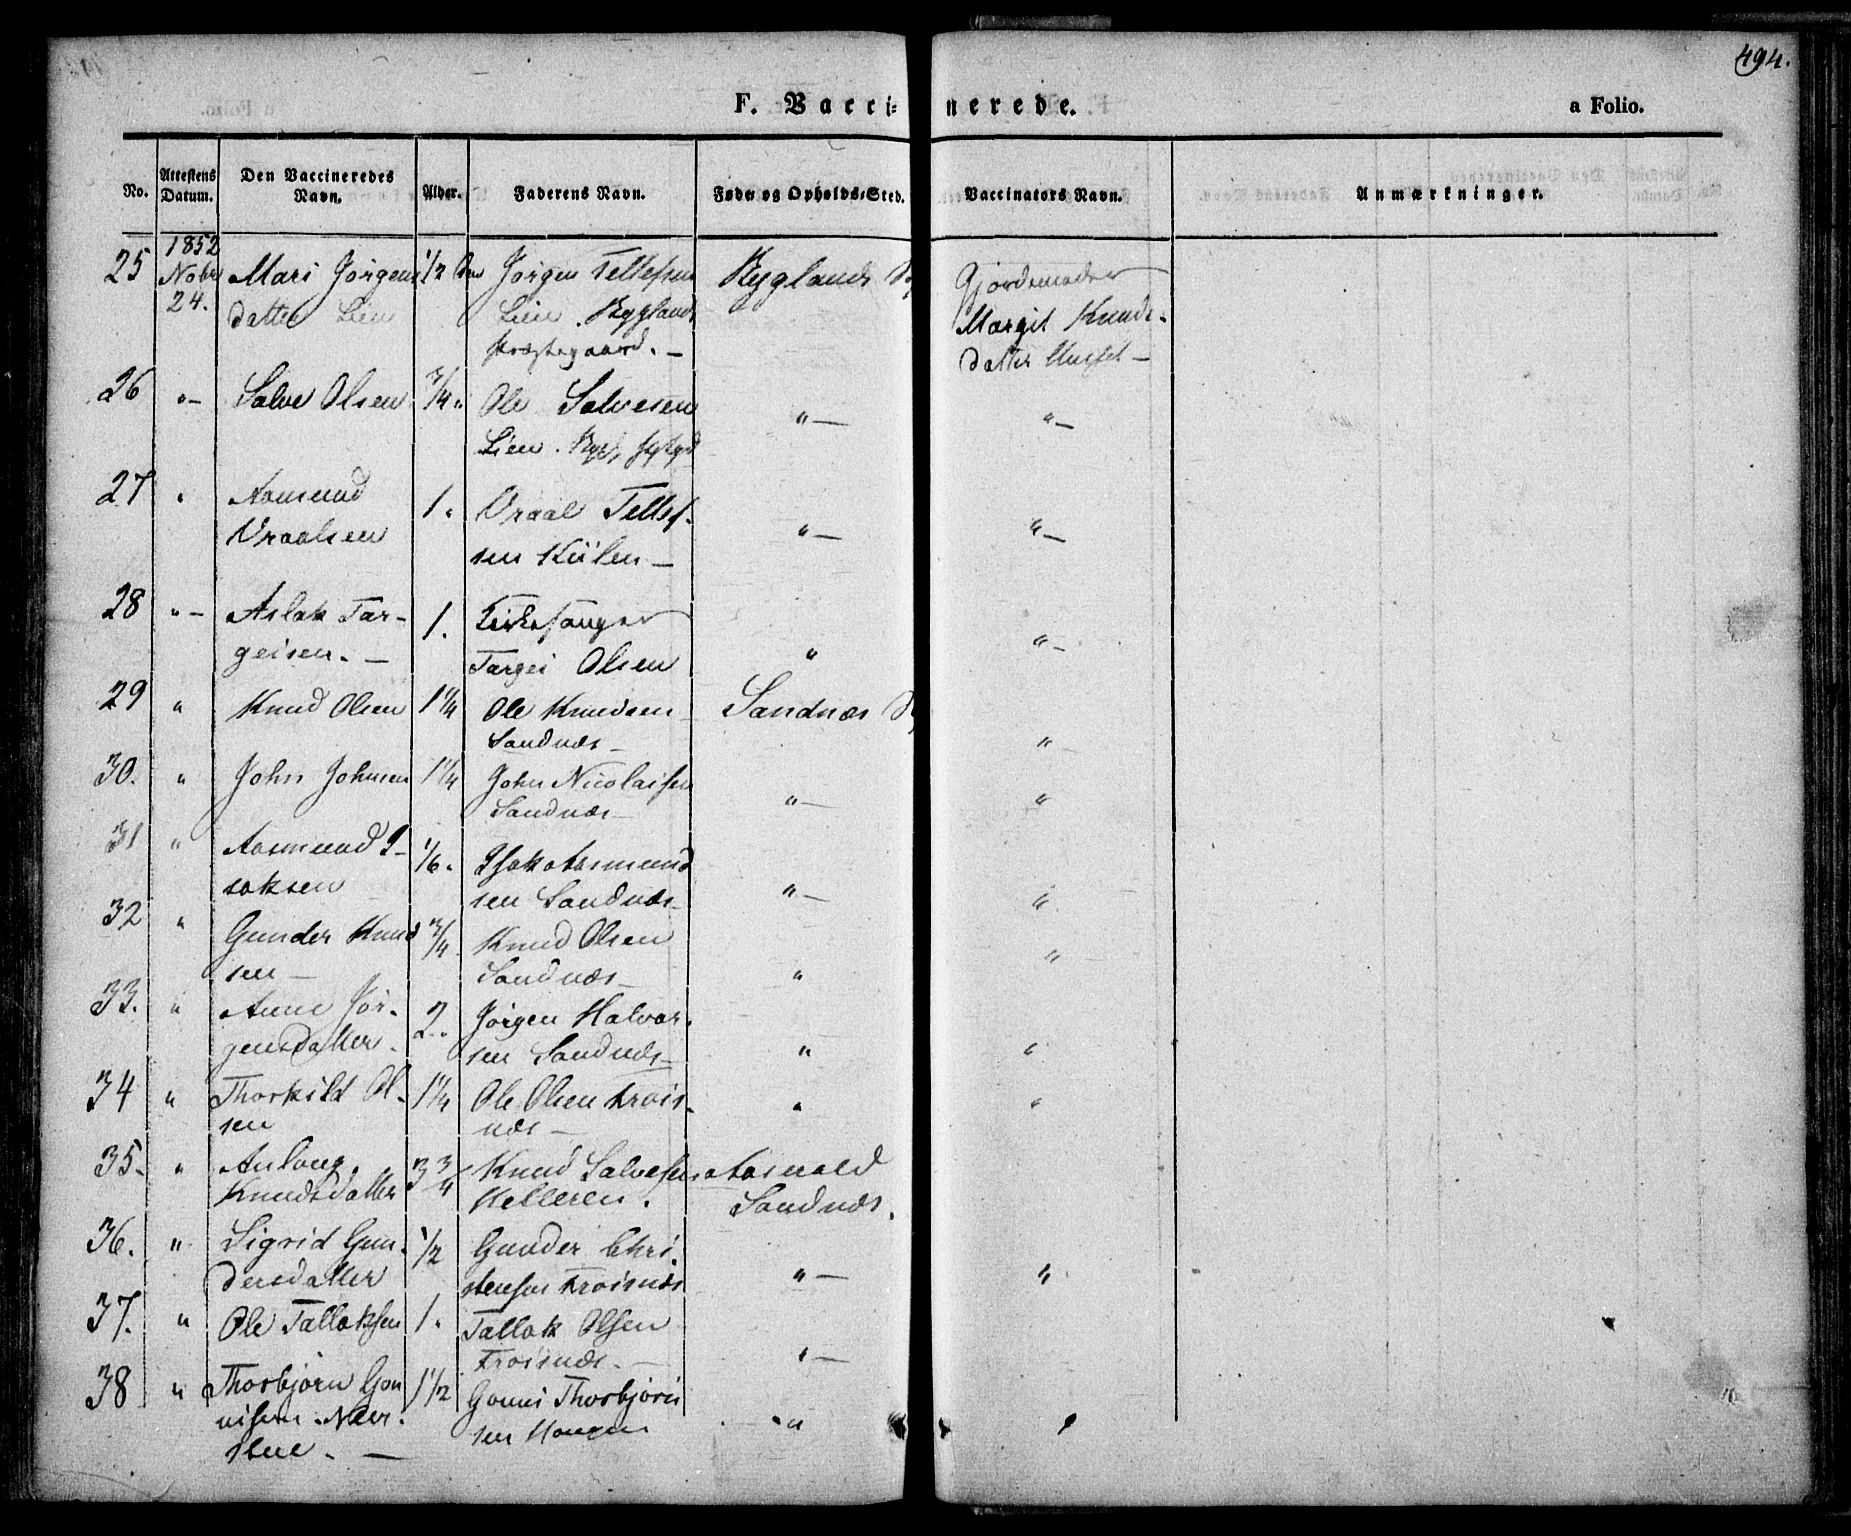 494.
F. Vacci= nerede. a Folio.
No. Attestens Datum. Den Vaccineredes Navn. Alder. Faderens Navn. Føde- og Opholds-Sted. Vaccinators Navn. Anmærkninger.
25 1852 Novbr 24. Mari Jörgens datter Lien 1/2 Jörgen Tellefsen Lien. Bygland Præstegaard. — Byglands Gjordemoder Margit Knuds- datter —
26 "— Salve Olsen 3/4 " Ole Salvesen Lien. "— "—
27 " Aasmund Vraalsen 1. Vraal Tellef- sen Kiilen — "— "—
28 "— Aslak Tar- geisen. — 1. Kirkesanger Targei Olsen " "—
29 " Knud Olsen 1 1/4 Ole Knudsen Sandnæs — Sandnæs "
30. " John Johnsen 1 1/4 John Nicolaisen Sandnæs — "— "
31 " Aasmund I- saksen 1/6. Isak Aasmund sen Sandnæs — "— "
32 " Gunder Knud sen — 3/4 Knud Olsen Sandnæs — " "
33. " Anne Jör- gensdatter. 2. Jörgen Halvor- sen Sandnæs — " "
34 " Thorkild Ol- sen 1 1/4 Ole Olsen Frois- næs — " "
35. " Anlaug Knudsdatter 3 3/4 Knud Salvesen Kelleren. Aasnald Sandnæs.
36. " Sigrid Gun- dersdatter 1/2 Gunder Chri- stensen Froisnæs "— "
37. " Ole Tallaksen 1. Tallak Olsen Froisnæs. — "—
38 " Thorbjörn Gon nisen. — 1 1/2 Gonni Thorbjörn sen Haugen "